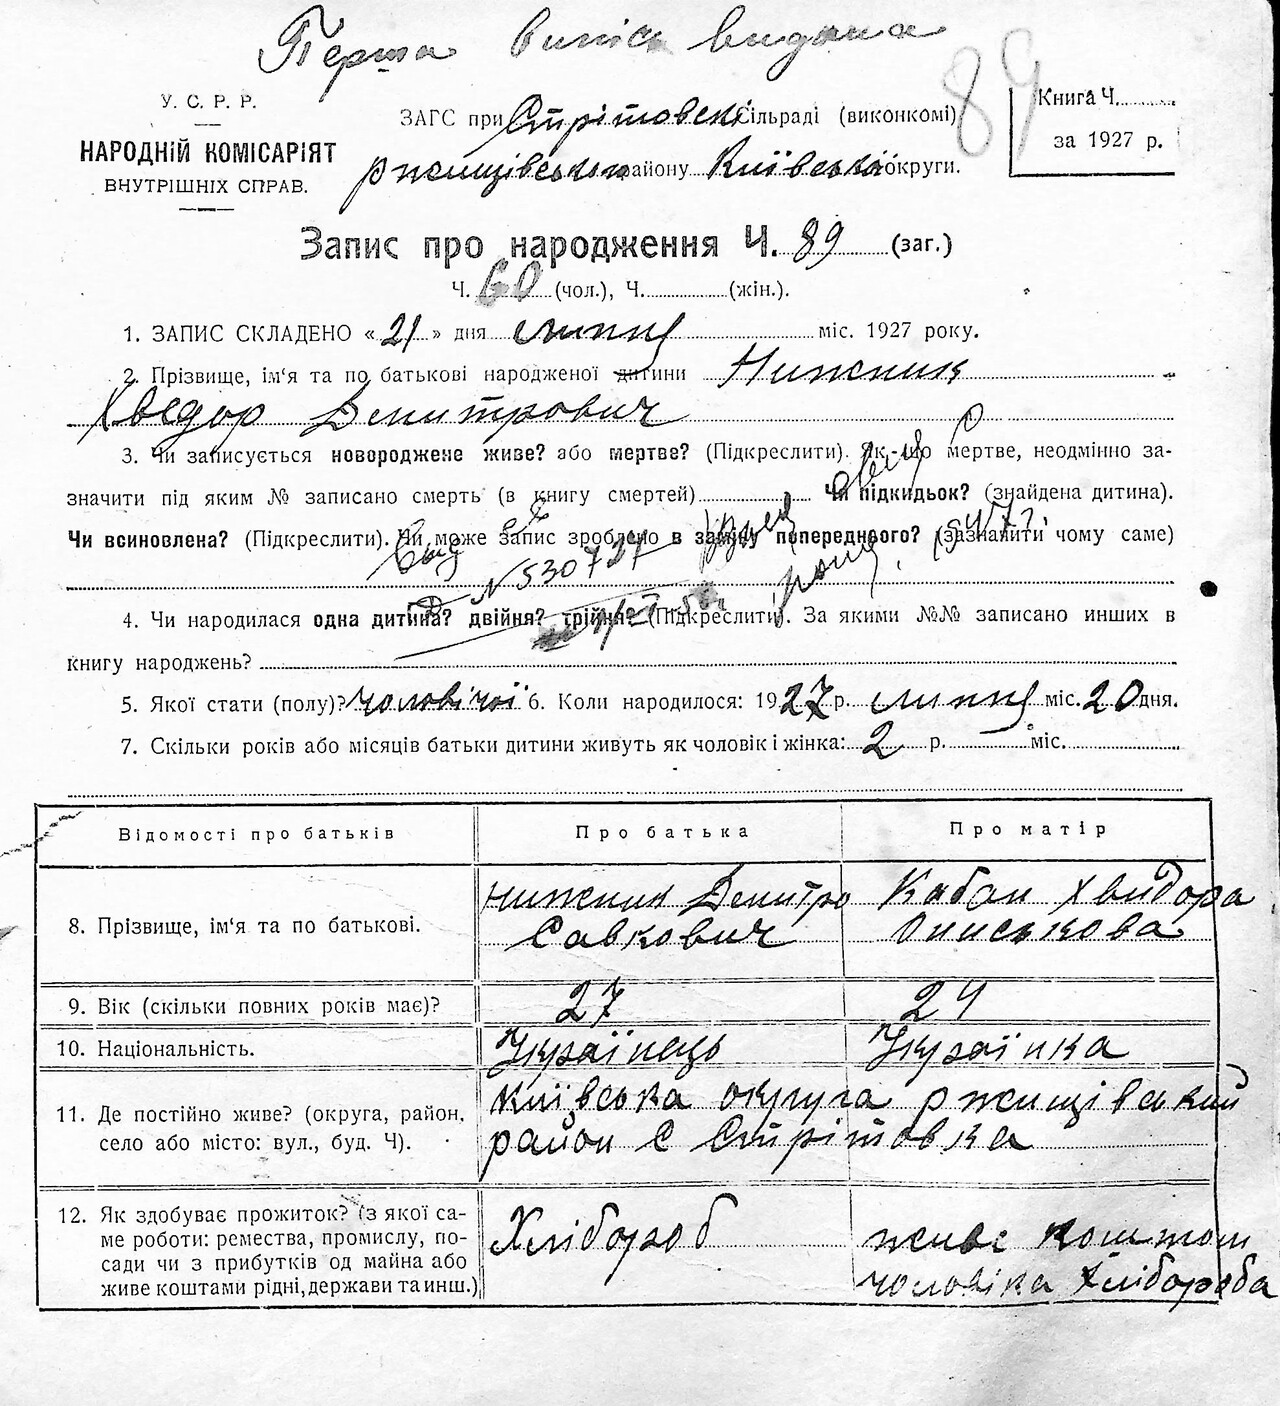 Перша випись видана
У. С. Р. Р.
НАРОДНІЙ КОМІСАРІЯТ
ВНУТРІШНІХ СПРАВ.
ЗАГС при Стрітовскі сільраді (виконкомі)
ржищівського району Київської округи.
89
Книга Ч.
за 1927 р.
Запис про народження Ч. 89 (заг.)
Ч. 60 (чол.), Ч. (жін.).
1. ЗАПИС СКЛАДЕНО «21» дня липня міс. 1927 року.
2. Прізвище, ім‘я та по батькові народженої дитини Нижник
Хведор Демитрович
3. Чи записується новороджене живе? або мертве? (Підкреслити). Як-що мертве, неодмінно за-
значити під яким № записано смерть (в книгу смертей) Чи підкидьок? (знайдена дитина).
Чи всиновлена? (Підкреслити). Чи може запис зроблено в заміну попереднього? (зазначити чому саме)
№ 530727
4. Чи народилася одна дитина? двійня? трійня? (Підкреслити). За якими №№ записано инших в
книгу народжень?
5. Якої стати (полу)? чоловічої 6. Коли народилося: 1927 р. липня міс. 20 дня.
7. Скільки років або місяців батьки дитини живуть як чоловік і жінка: 2 р. міс.
Відомості про батьків Про батька Про матір
8. Прізвище, ім‘я та по батькові. Нижник Демитро Савкович Кабан Хвидора Ониськова
9. Вік (скільки повних років має)? 27 24
10. Національність. Українець Українка
11. Де постійно живе? (округа, район, Київська округа ржищівський
село або місто: вул., буд. Ч). район С Стрітовка
12. Як здобуває прожиток? (з якої са-
ме роботи: ремества, промислу, по- Хлібороб живе коштом
сади чи з прибутків од майна або
живе коштами рідні, держави та инш.) чоловіка Хлібороба